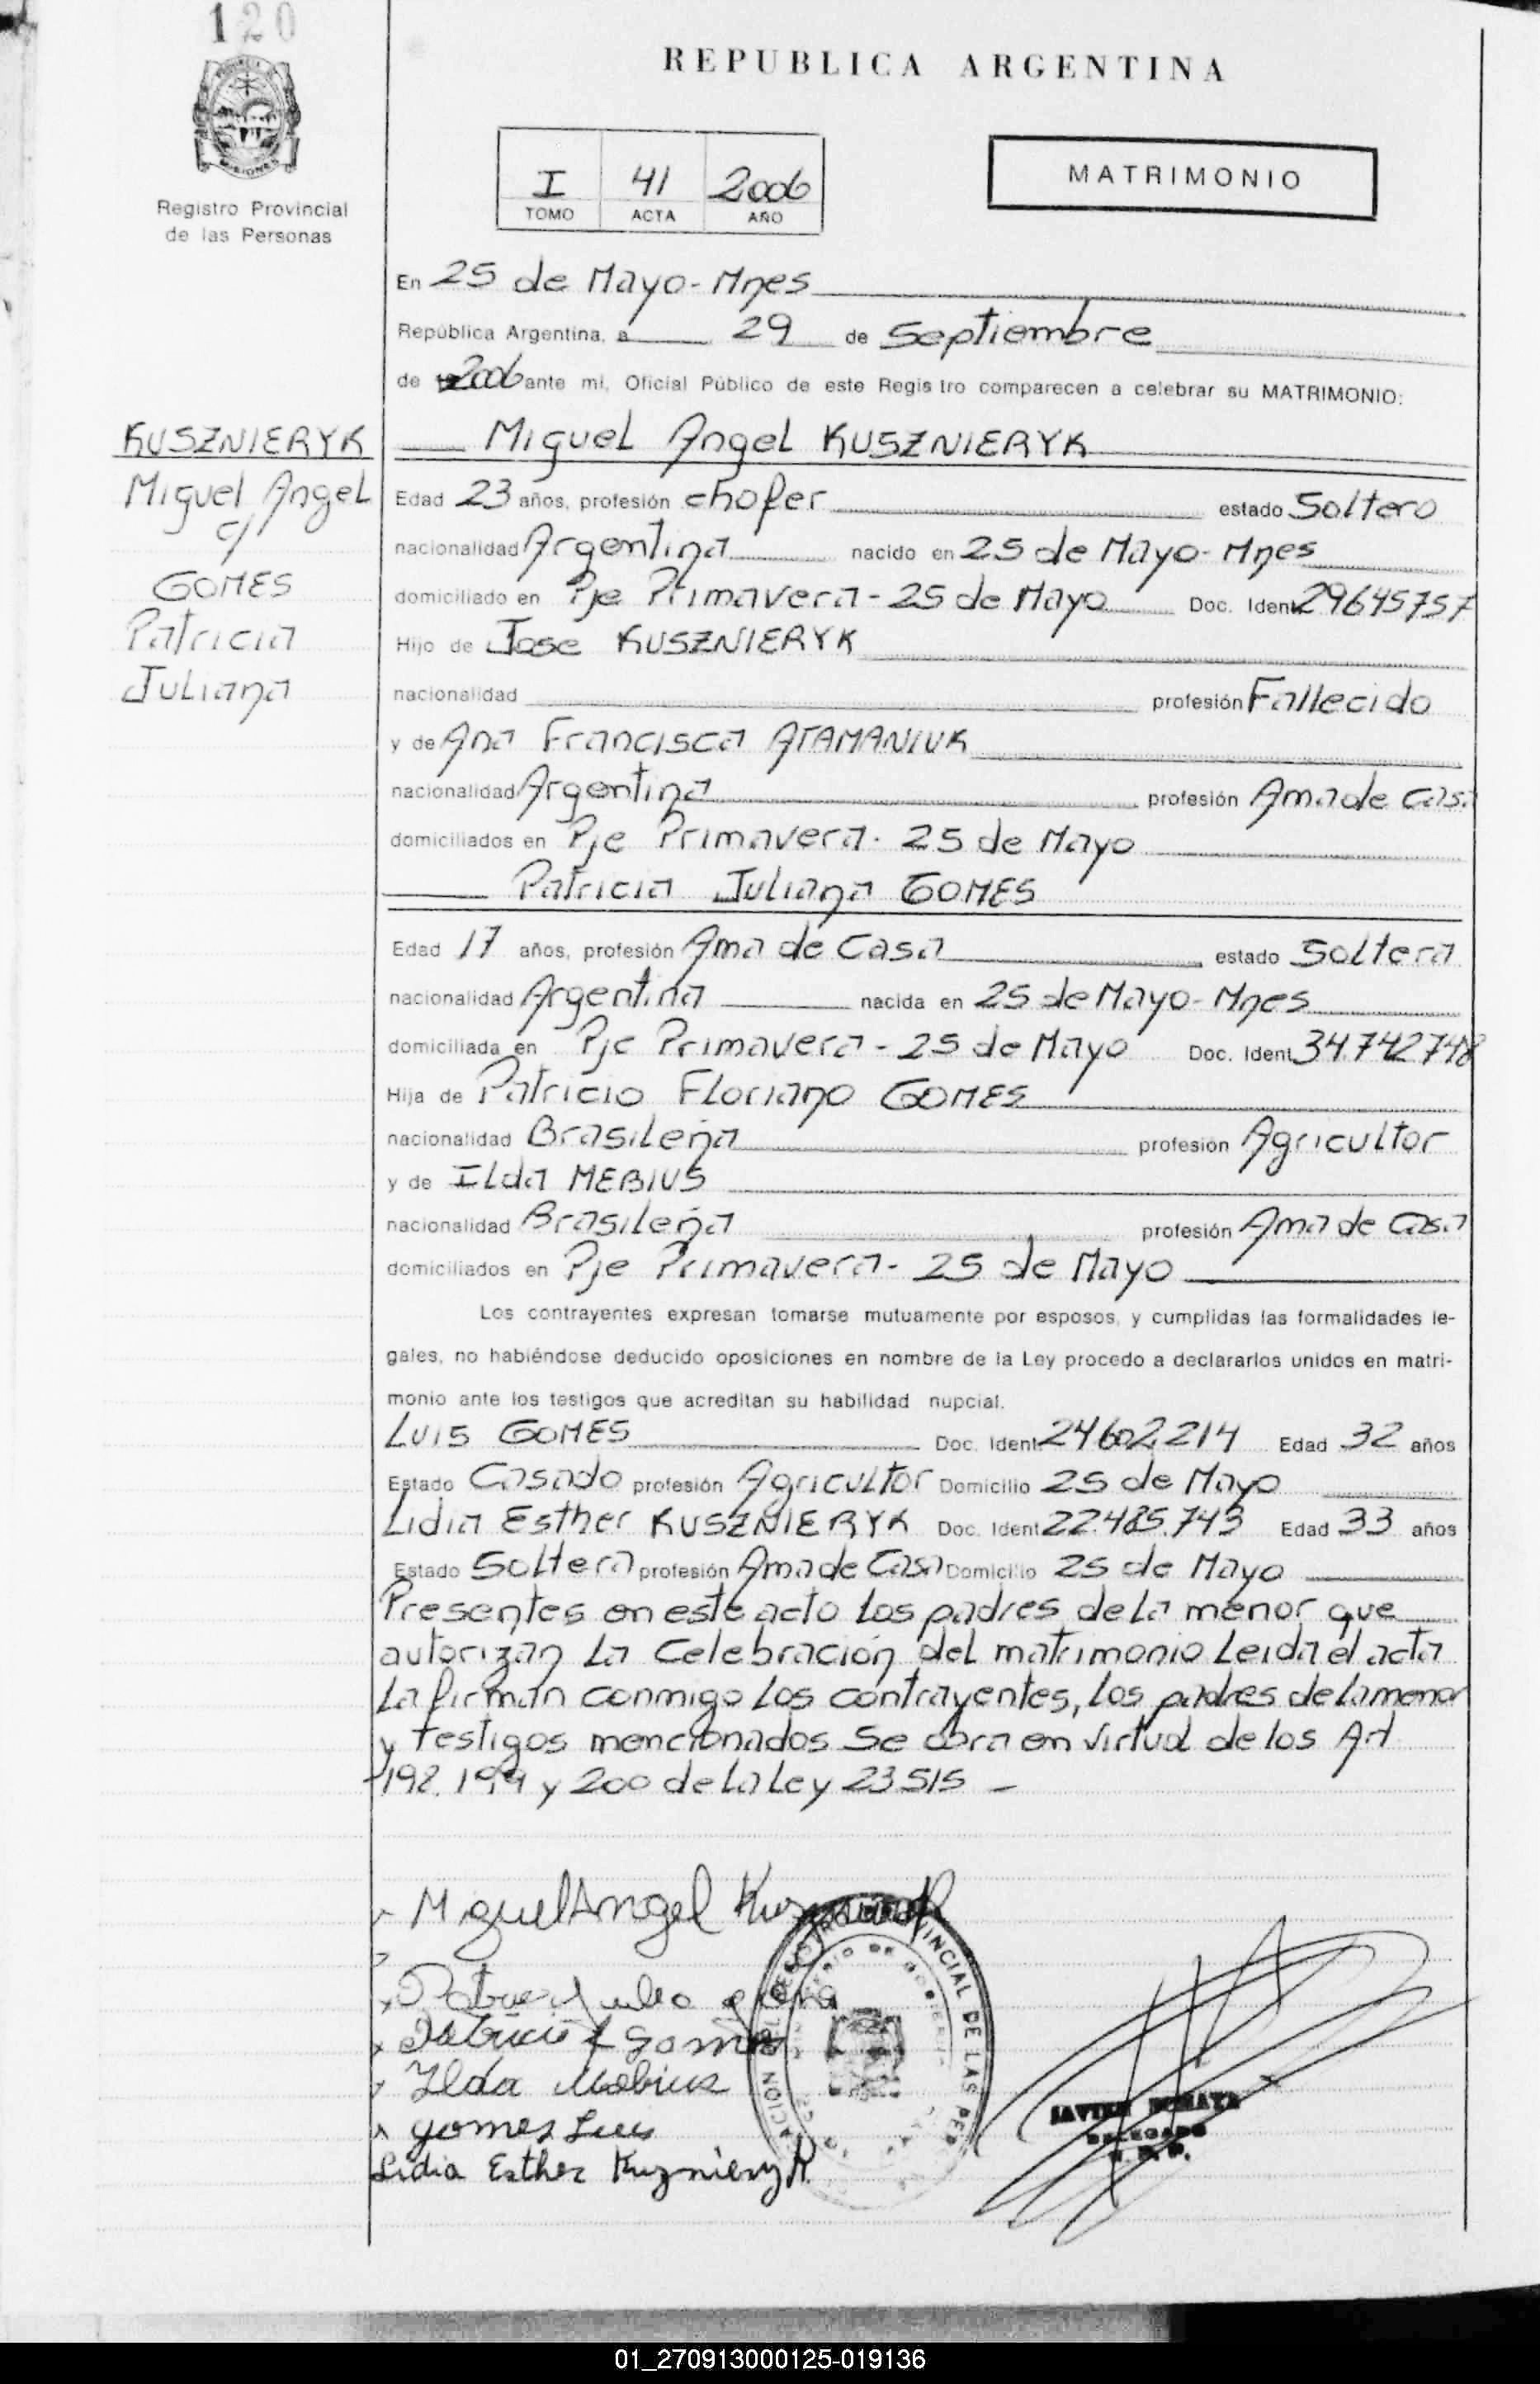 120
REPUBLICA ARGENTINA
PROVINCIA DE MISIONES
Registro Provincial
de las Personas
I 41 2006
TOMO ACTA AÑO
MATRIMONIO
En 25 de Mayo - Mnes
República Argentina, a 29 de Septiembre
de 2006 ante mi, Oficial Público de este Registro comparecen a celebrar su MATRIMONIO:
KUSZNIERYK
Miguel Angel
c/
GOMES
Patricia
Juliana
Miguel Angel KUSZNIERYK
Edad 23 años, profesión chofer estado Soltero
nacionalidad Argentina nacido en 25 de Mayo - Mnes
domiciliado en Pje Primavera - 25 de Mayo Doc. Ident. 29645757
Hijo de Jose KUSZNIERYK
nacionalidad profesión Fallecido
y de Ana Francisca ATAMANIUK
nacionalidad Argentina profesión Ama de Casa
domiciliados en Pje Primavera - 25 de Mayo
Patricia Juliana GOMES
Edad 17 años, profesión Ama de Casa estado Soltera
nacionalidad Argentina nacida en 25 de Mayo - Mnes
domiciliada en Pje Primavera - 25 de Mayo Doc. Ident. 34.742748
Hija de Patricio Floriano GOMES
nacionalidad Brasileña profesión Agricultor
y de Ilda MEBIUS
nacionalidad Brasileña profesión Ama de Casa
domiciliados en Pje Primavera - 25 de Mayo
Los contrayentes expresan tomarse mutuamente por esposos, y cumplidas las formalidades le-
gales, no habiéndose deducido oposiciones en nombre de la Ley procedo a declararlos unidos en matri-
monio ante los testigos que acreditan su habilidad nupcial.
Luis GOMES Doc. Ident. 24602214 Edad 32 años
Estado Casado profesión Agricultor Domicilio 25 de Mayo
Lidia Esther KUSZNIERYK Doc. Ident. 22.485.743 Edad 33 años
Estado Soltera profesión Ama de Casa Domicilio 25 de Mayo
Presentes en este acto los padres de la menor que
autorizan la Celebración del matrimonio Leida el acta
la firman conmigo los contrayentes, los padres de la menor
y testigos mencionados Se obra en virtud de los Art
192. 199 y 200 de la Ley 23515 -
Miguel Angel
Patricio F Gomes
Ilda Mebius
Gomes Luis
Lidia Esther Kuznieryk
PROVINCIAL DE LAS PER
JAVIER
DELEGADO
01_270913000125-019136